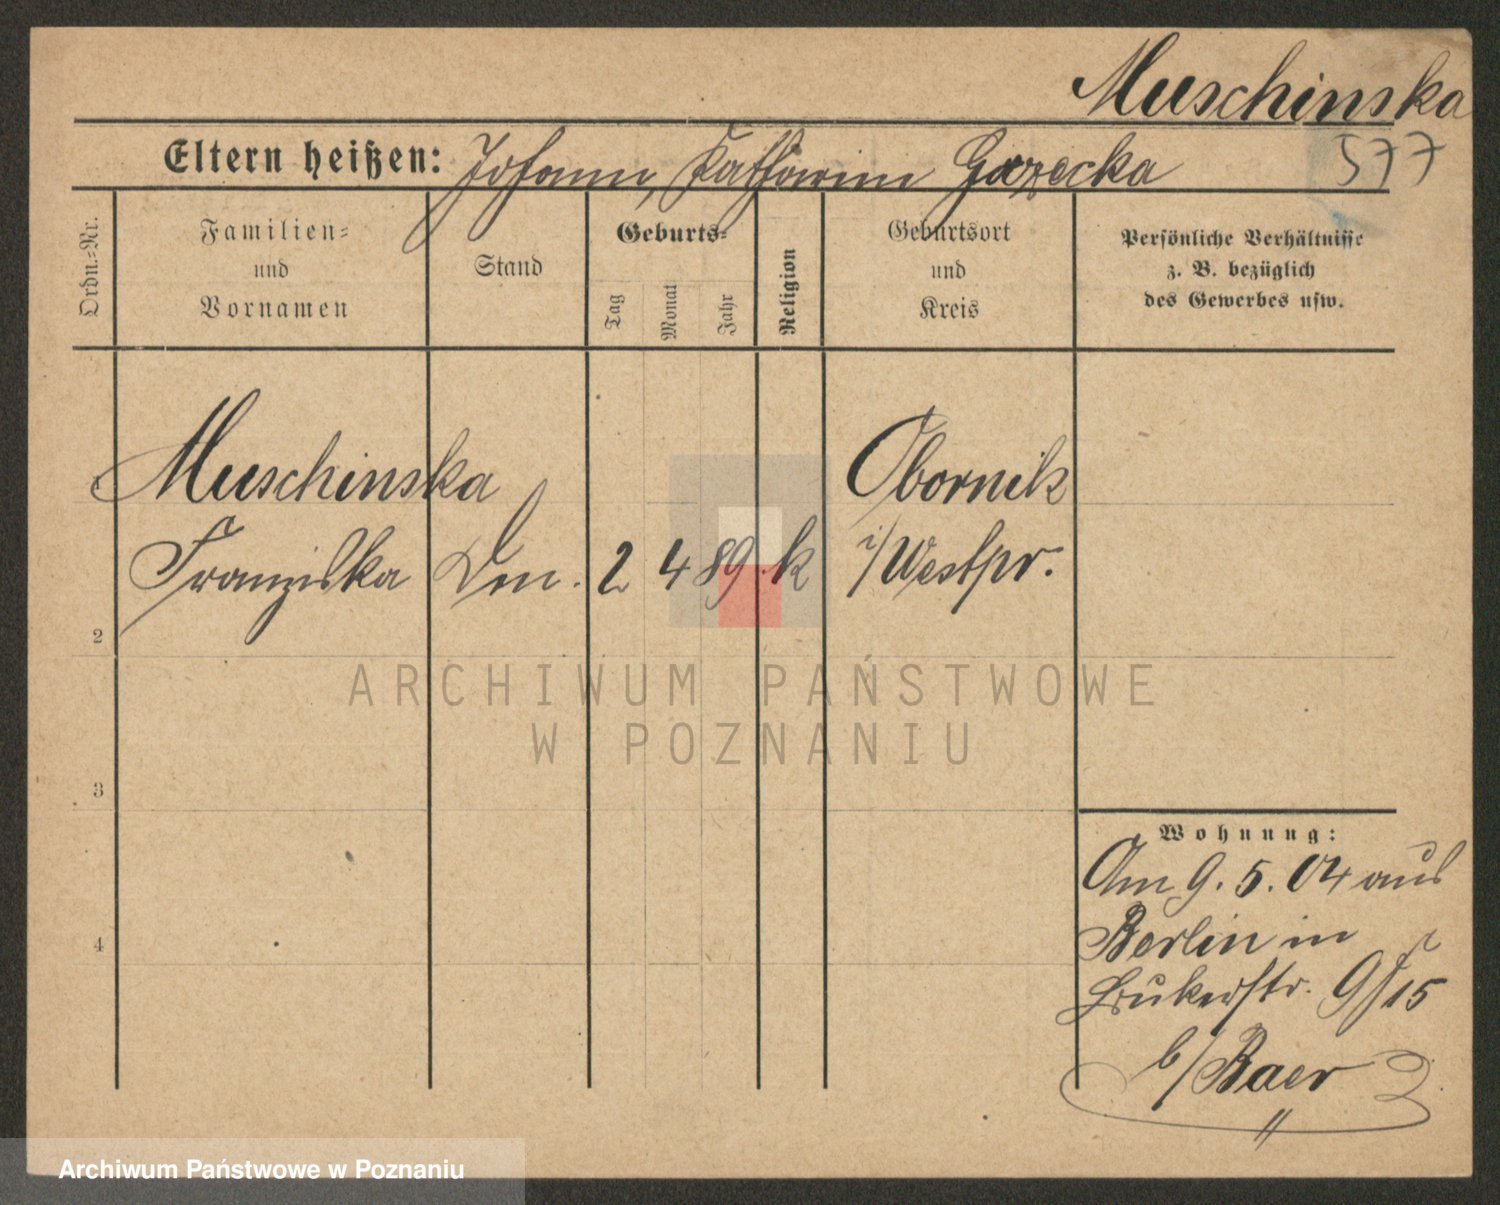 Muschinska
577
Eltern heißen: Johann, Katharina Gozecka
Ordn.-Nr.
Familien-
und
Vornamen
Stand
Geburts-
Tag
Monat
Jahr
Religion
Geburtsort
und
Kreis
Persönliche Verhältnisse
z. B. bezüglich
des Gewerbes usw.
1
Muschinska
Franziska
2 4 89 k
Obornik
i/Westpr.
2
3
4
Wohnung:
Am 9. 5. 04 aus
Berlin in
15
b/Baer
ARCHIWUM PAŃSTWOWE
W POZNANIU
Archiwum Państwowe w Poznaniu